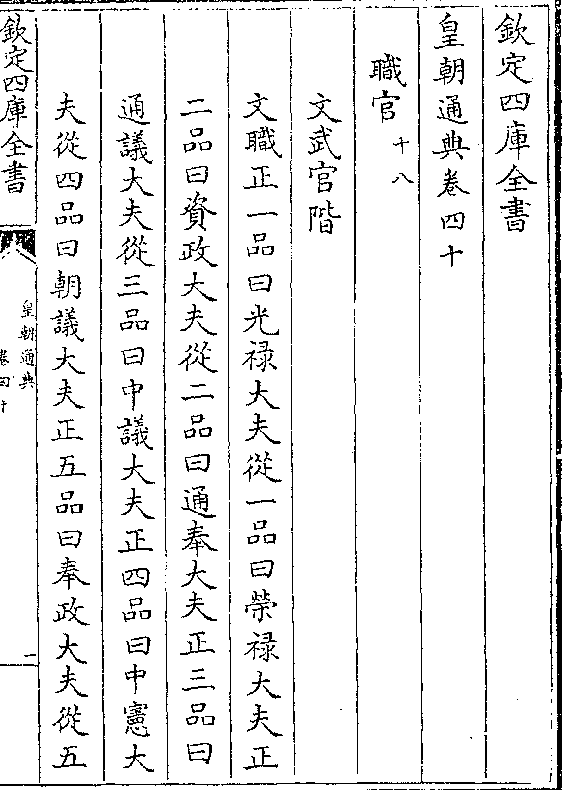 欽定四庫全書
皇朝通典卷四十
職官十八
文武官階
文職正一品曰光禄大夫從一品曰榮禄大夫正
二品曰資政大夫從二品曰通奉大夫正三品曰
通議大夫從三品曰中議大夫正四品曰中憲大
夫從四品曰朝議大夫正五品曰奉政大夫從五
欽定四庫全書
皇朝通典
卷四十
一